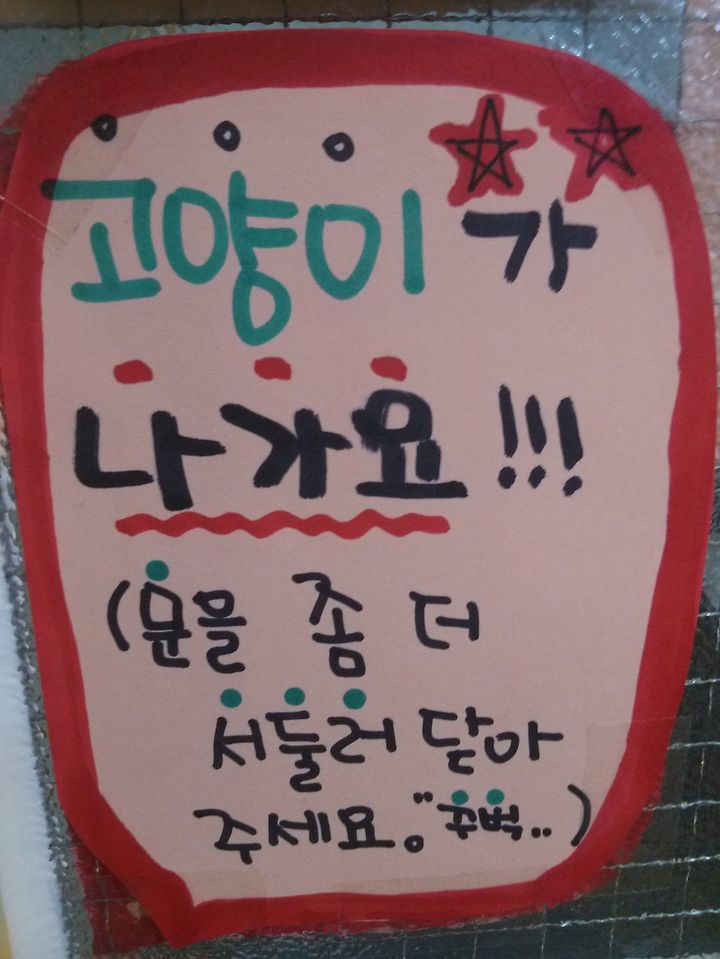 고양이가
나가요!!!
(문을 좀 더
서둘러 닫아
주세요. "꾸벅..)